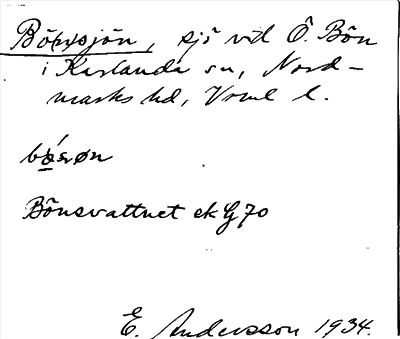 Bönsjön, sjö vid Ö. Bön
i Karlanda sn, Nord-
marks hd, Vrml l.
Bönsvattnet ek G 70
E. Andersson 1934.